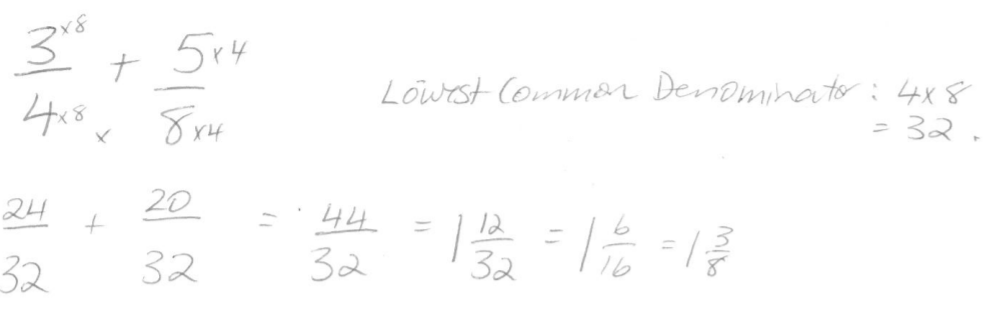 3^x8/4^x8 + 5x4/8x4
x
Lowest Common Denominator : 4x8
= 32.
24/32 + 20/32 = 44/32 = 1 12/32 = 1 6/16 = 1 3/8